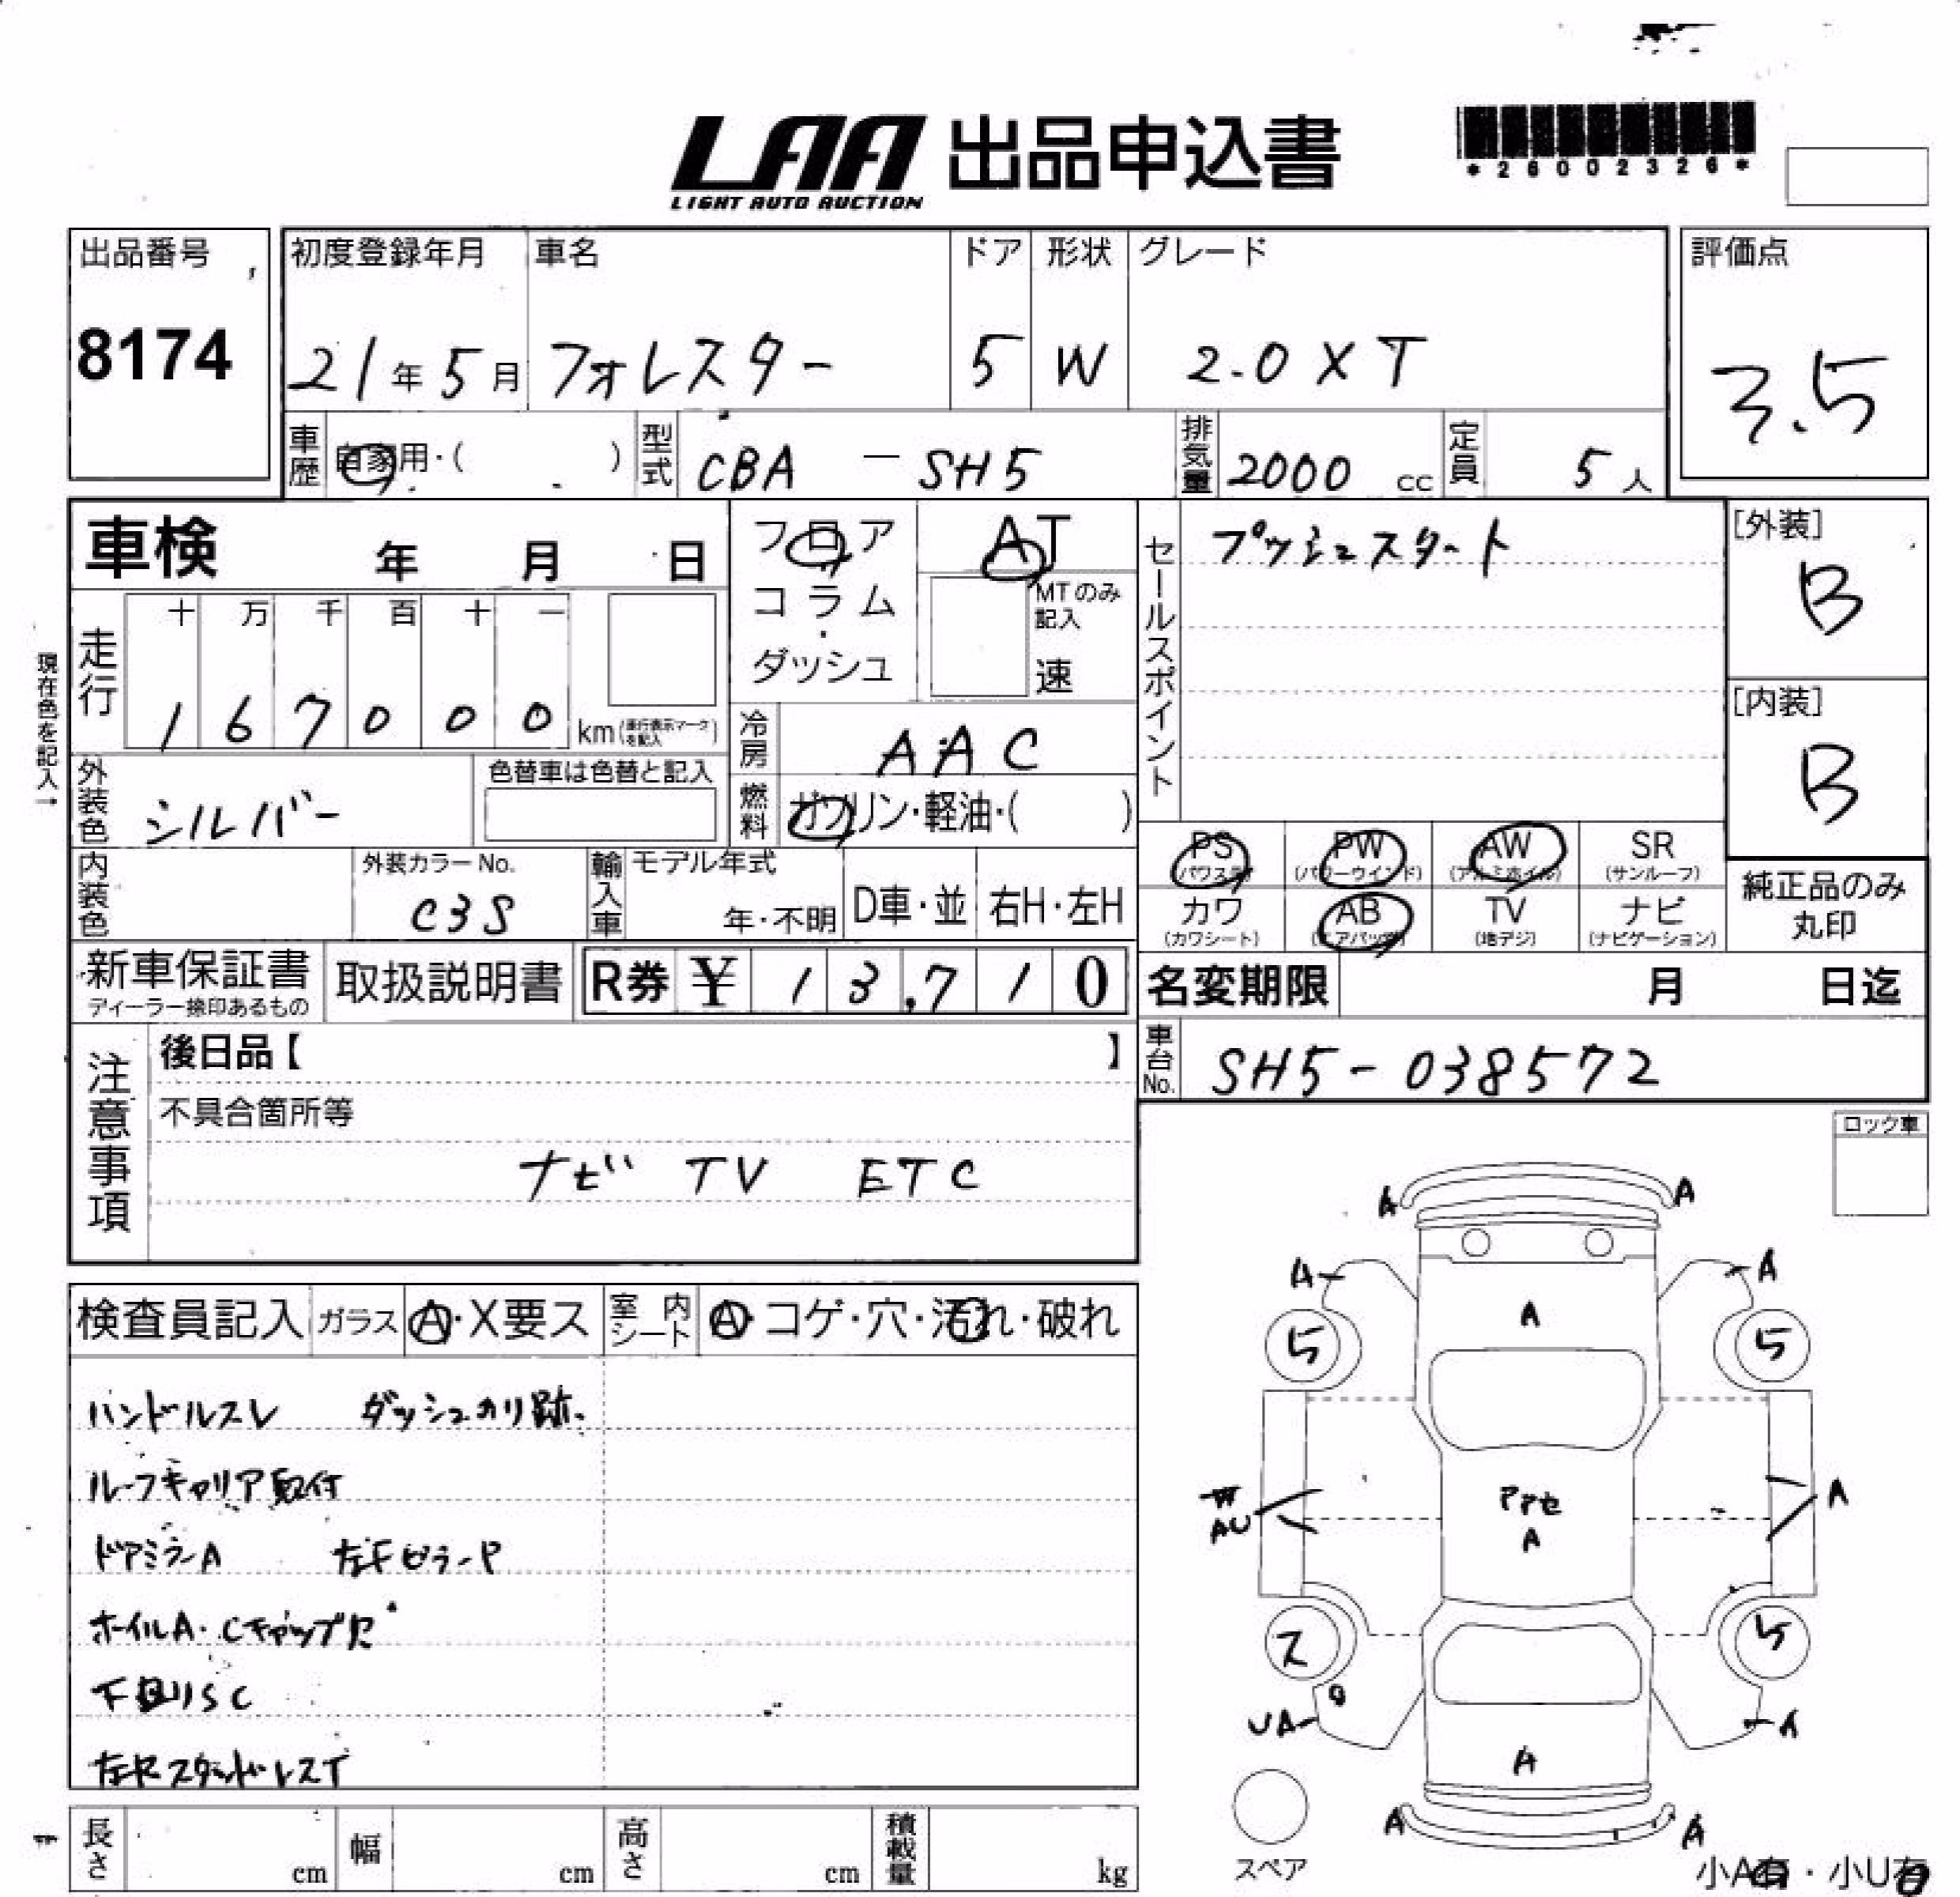 LAA 出品申込書
LIGHT AUTO AUCTION
*26002326*
出品番号
8174
初度登録年月 車名 ドア 形状 グレード
21年5月 フォレスター 5 W 2.0XT
評価点
3.5
車歴 自家用・( ) 型式 CBA - SH5 排気量 2000 cc 定員 5人
車検 年 月 日
フロア
コラム
・
ダッシュ
AT
MTのみ
記入
速
セールスポイント プッシュスタート
[外装]
B
[内装]
B
現在色を記入→
走行 十 万 千 百 十 一
1 6 7 0 0 0 km
冷房 AAC
外装色 シルバー 色替車は色替と記入
燃料 ガソリン・軽油・( )
PS PW AW SR
(パワステ) (パワーウインド) (アルミホイル) (サンルーフ)
カワ AB TV ナビ
(カワシート) (エアバッグ) (地デジ) (ナビゲーション)
純正品のみ
丸印
内装色 外装カラーNo.
C3S
輸入車 モデル年式
年・不明 D車・並 右H・左H
新車保証書 取扱説明書 R券 ¥ 13,710
ディーラー捺印あるもの
名変期限 月 日迄
車台No. SH5-038572
注意事項 後日品【 】
不具合箇所等
ナビ TV ETC
ロック車
検査員記入 ガラス A・X要ス 室内シート A・コゲ・穴・汚れ・破れ
ハンドルスレ ダッシュカリ跡
ルーフキャリア取付
ドアミラーA 左FピラーP
ホイルA・Cキャップ欠
下回りSC
左Rスタッドレス
A A
A A
A
5 5
AU A
A
ス 5
UA
A
A A
スペア
小A有・小U有
長さ cm 幅 cm 高さ cm 積載量 kg